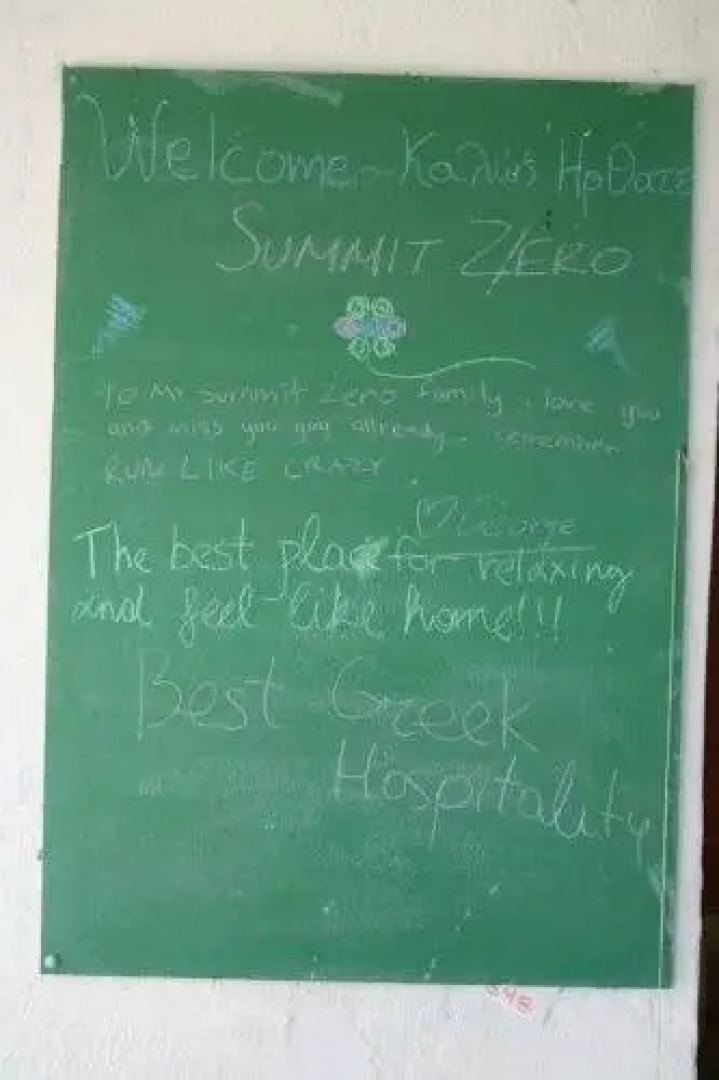 Welcome - Καλώς Ήρθατε
SUMMIT ZERO
To My summit Zero family, i love you
and miss you guy allready. remember
RUN LIKE CRAZY
♡ George
The best place for relaxing
and feel like home!!!
Best Greek
Hospitality